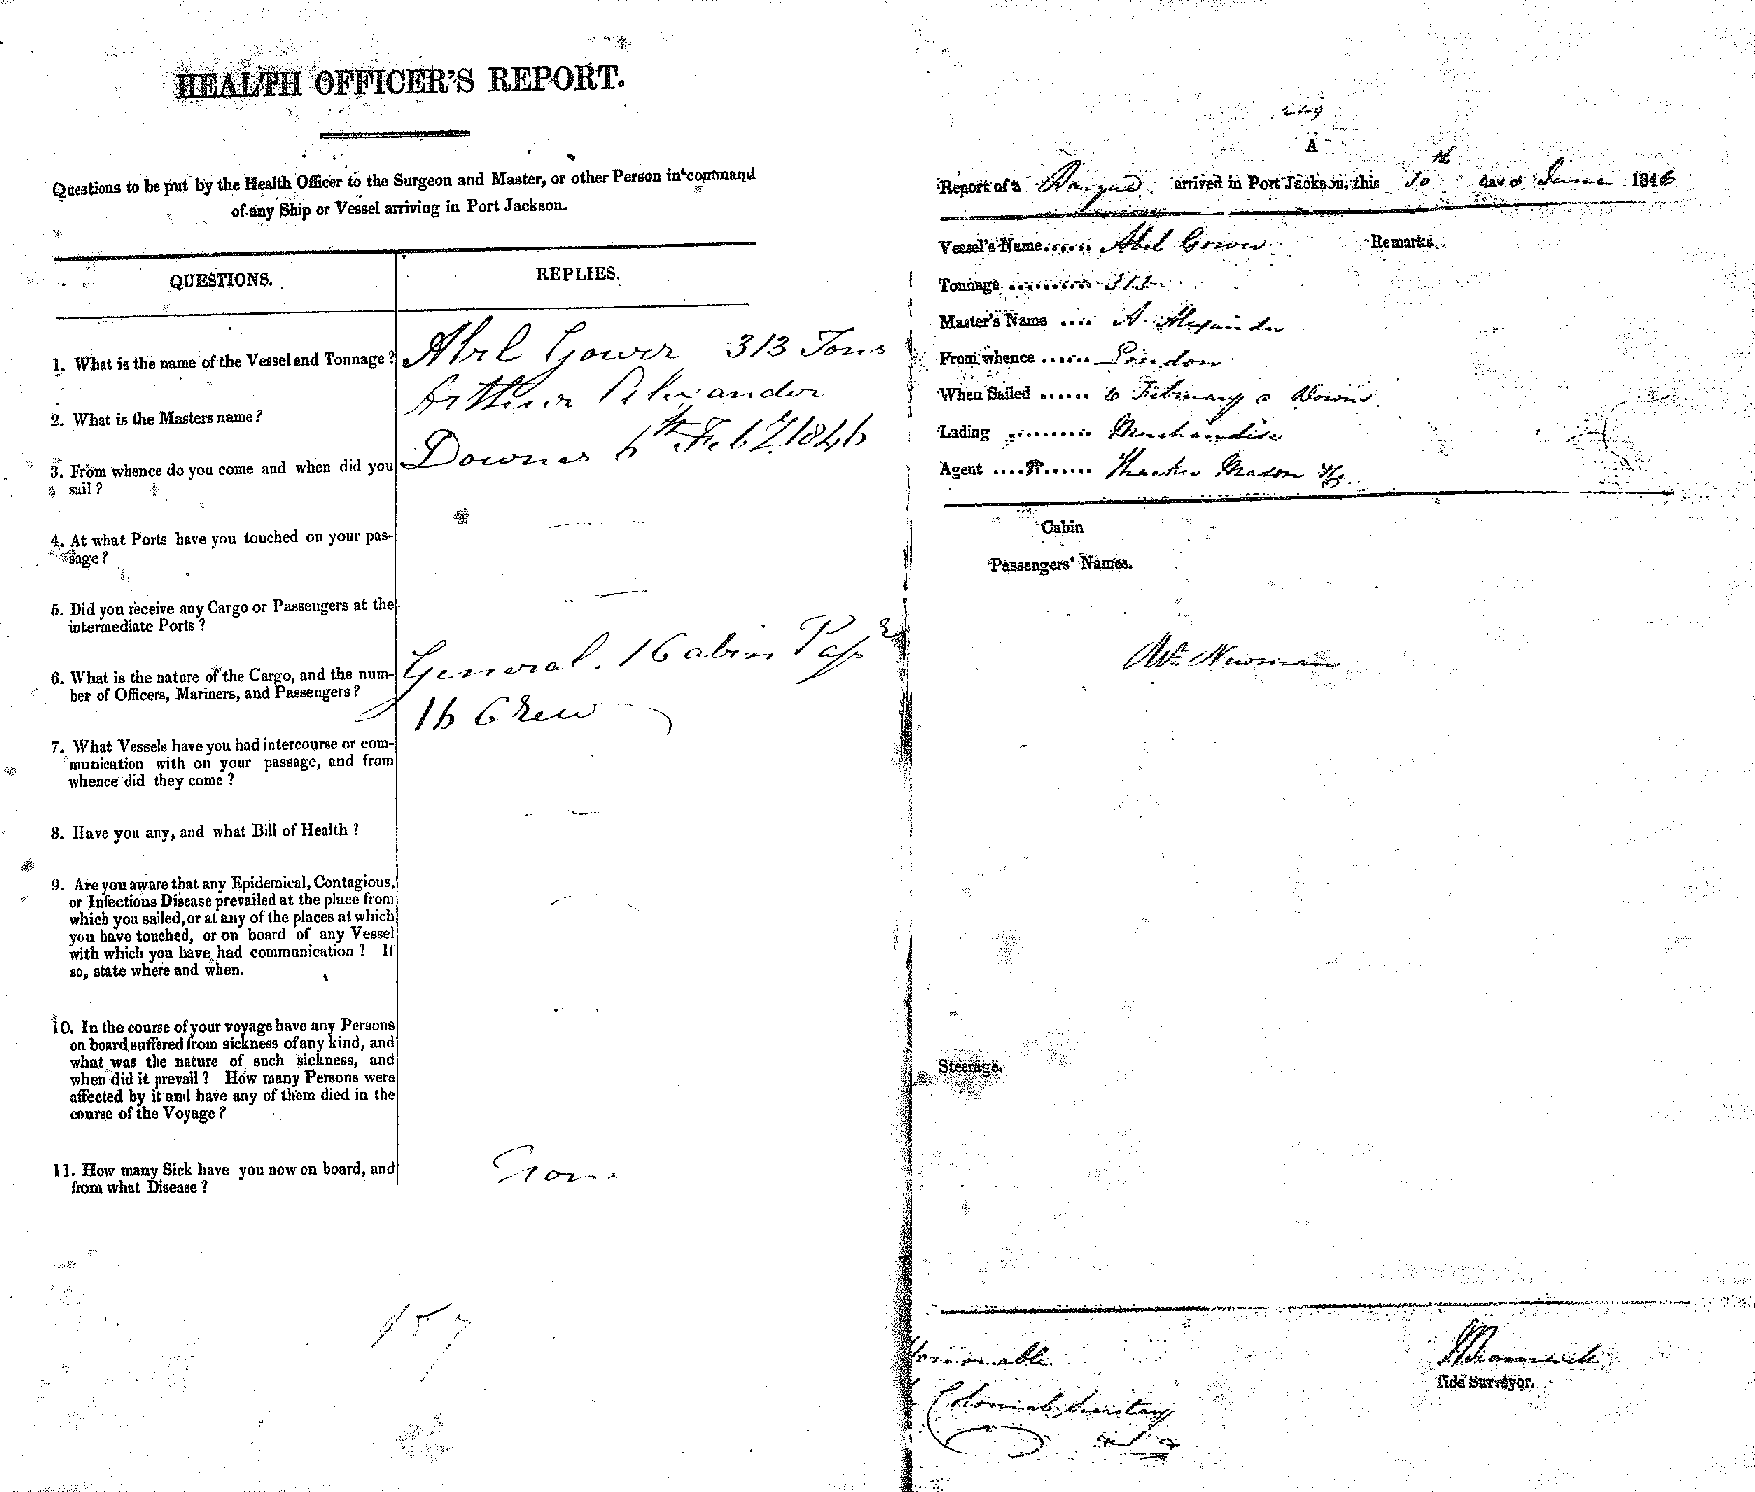 HEALTH OFFICER'S REPORT.
Questions to be put by the Health Officer to the Surgeon and Master, or other Person in command
of any Ship or Vessel arriving in Port Jackson.
QUESTIONS.
REPLIES.
1. What is the name of the Vessel and Tonnage?
Abel Gower 313 Tons
2. What is the Masters name?
Arthur Alexander
3. From whence do you come and when did you
sail?
Downes 6th Feby 1846
4. At what Ports have you touched on your pas-
sage?
5. Did you receive any Cargo or Passengers at the
intermediate Ports?
6. What is the nature of the Cargo, and the num-
ber of Officers, Mariners, and Passengers?
General. 1 Cabin Pasr
16 Crew
7. What Vessels have you had intercourse or com-
munication with on your passage, and from
whence did they come?
8. Have you any, and what Bill of Health?
9. Are you aware that any Epidemical, Contagious,
or Infectious Disease prevailed at the place from
which you sailed, or at any of the places at which
you have touched, or on board of any Vessel
with which you have had communication? If
so, state where and when.
10. In the course of your voyage have any Persons
on board suffered from sickness of any kind, and
what was the nature of such sickness, and
when did it prevail? How many Persons were
affected by it and have any of them died in the
course of the Voyage?
11. How many Sick have you now on board, and
from what Disease?
None
157
A
Report of a Barque arrived in Port Jackson, this 10th day of June 1846
Vessel's Name...... Abel Gower
Remarks.
Tonnage .......... 313
Master's Name .... A Alexander
From whence ...... London
When Sailed ...... 6 February Downs
Lading .......... Merchandise
Agent .......... Thacker Mason & Co
Cabin
Passengers' Names.
Mr. Newman
Steerage.
Honorable
Colonial Secretary
Tide Surveyor.